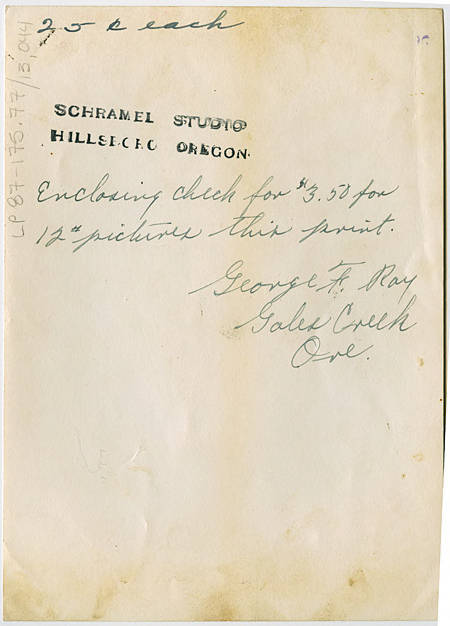 25 ¢ each
LP87-175.77/13,044
SCHRAMEL STUDIO
HILLSBORO OREGON
Enclosing check for $3.50 for
12 pictures this print.
George F. Ray
Gales Creek
Ore.